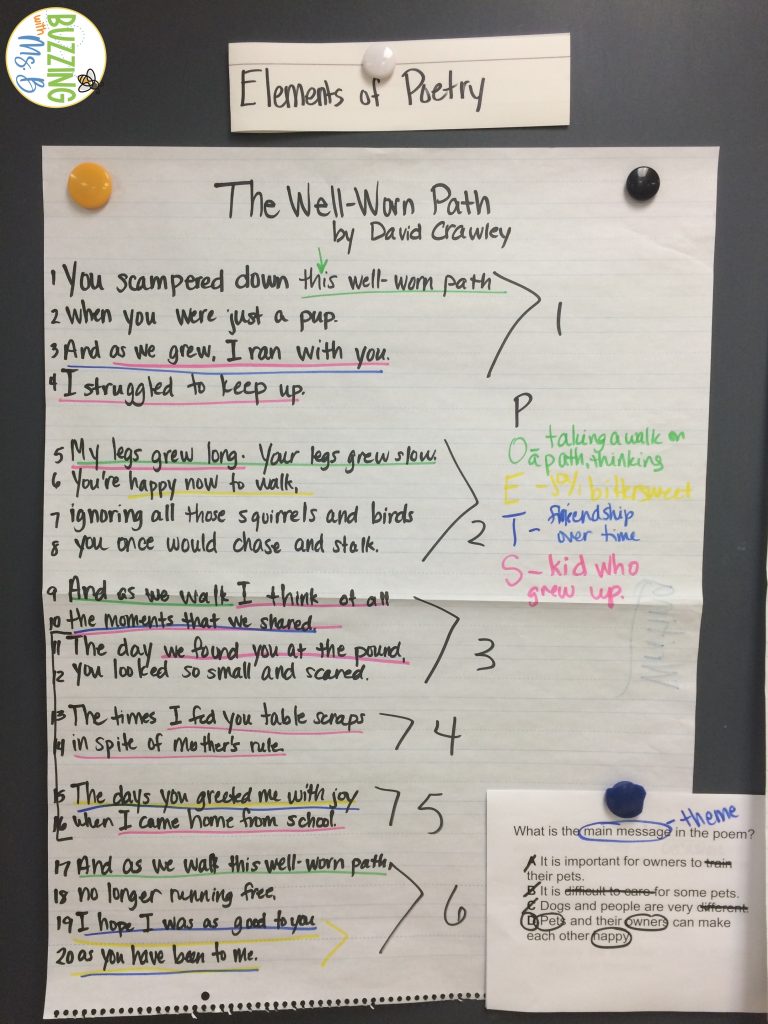 BUZZING
with Ms. B
Elements of Poetry
The Well-Worn Path
by David Crawley
1 You scampered down this well-worn path
2 when you were just a pup.
3 And as we grew, I ran with you.
4 I struggled to keep up.
1
5 My legs grew long. Your legs grew slow.
6 You're happy now to walk,
7 ignoring all those squirrels and birds
8 you once would chase and stalk.
2
9 And as we walk I think of all
10 the moments that we shared.
11 The day we found you at the pound,
12 you looked so small and scared.
3
13 The times I fed you table scraps
14 in spite of mother's rule.
4
15 The days you greeted me with joy
16 when I came home from school.
5
17 And as we walk this well-worn path,
18 no longer running free,
19 I hope I was as good to you
20 as you have been to me.
6
P
O = taking a walk on
a path, thinking
E - bittersweet
T - friendship
over time
S - kid who
grew up.
theme
What is the main message in the poem?
A It is important for owners to train
their pets.
B It is difficult to care for some pets.
C Dogs and people are very different.
D Pets and their owners can make
each other happy